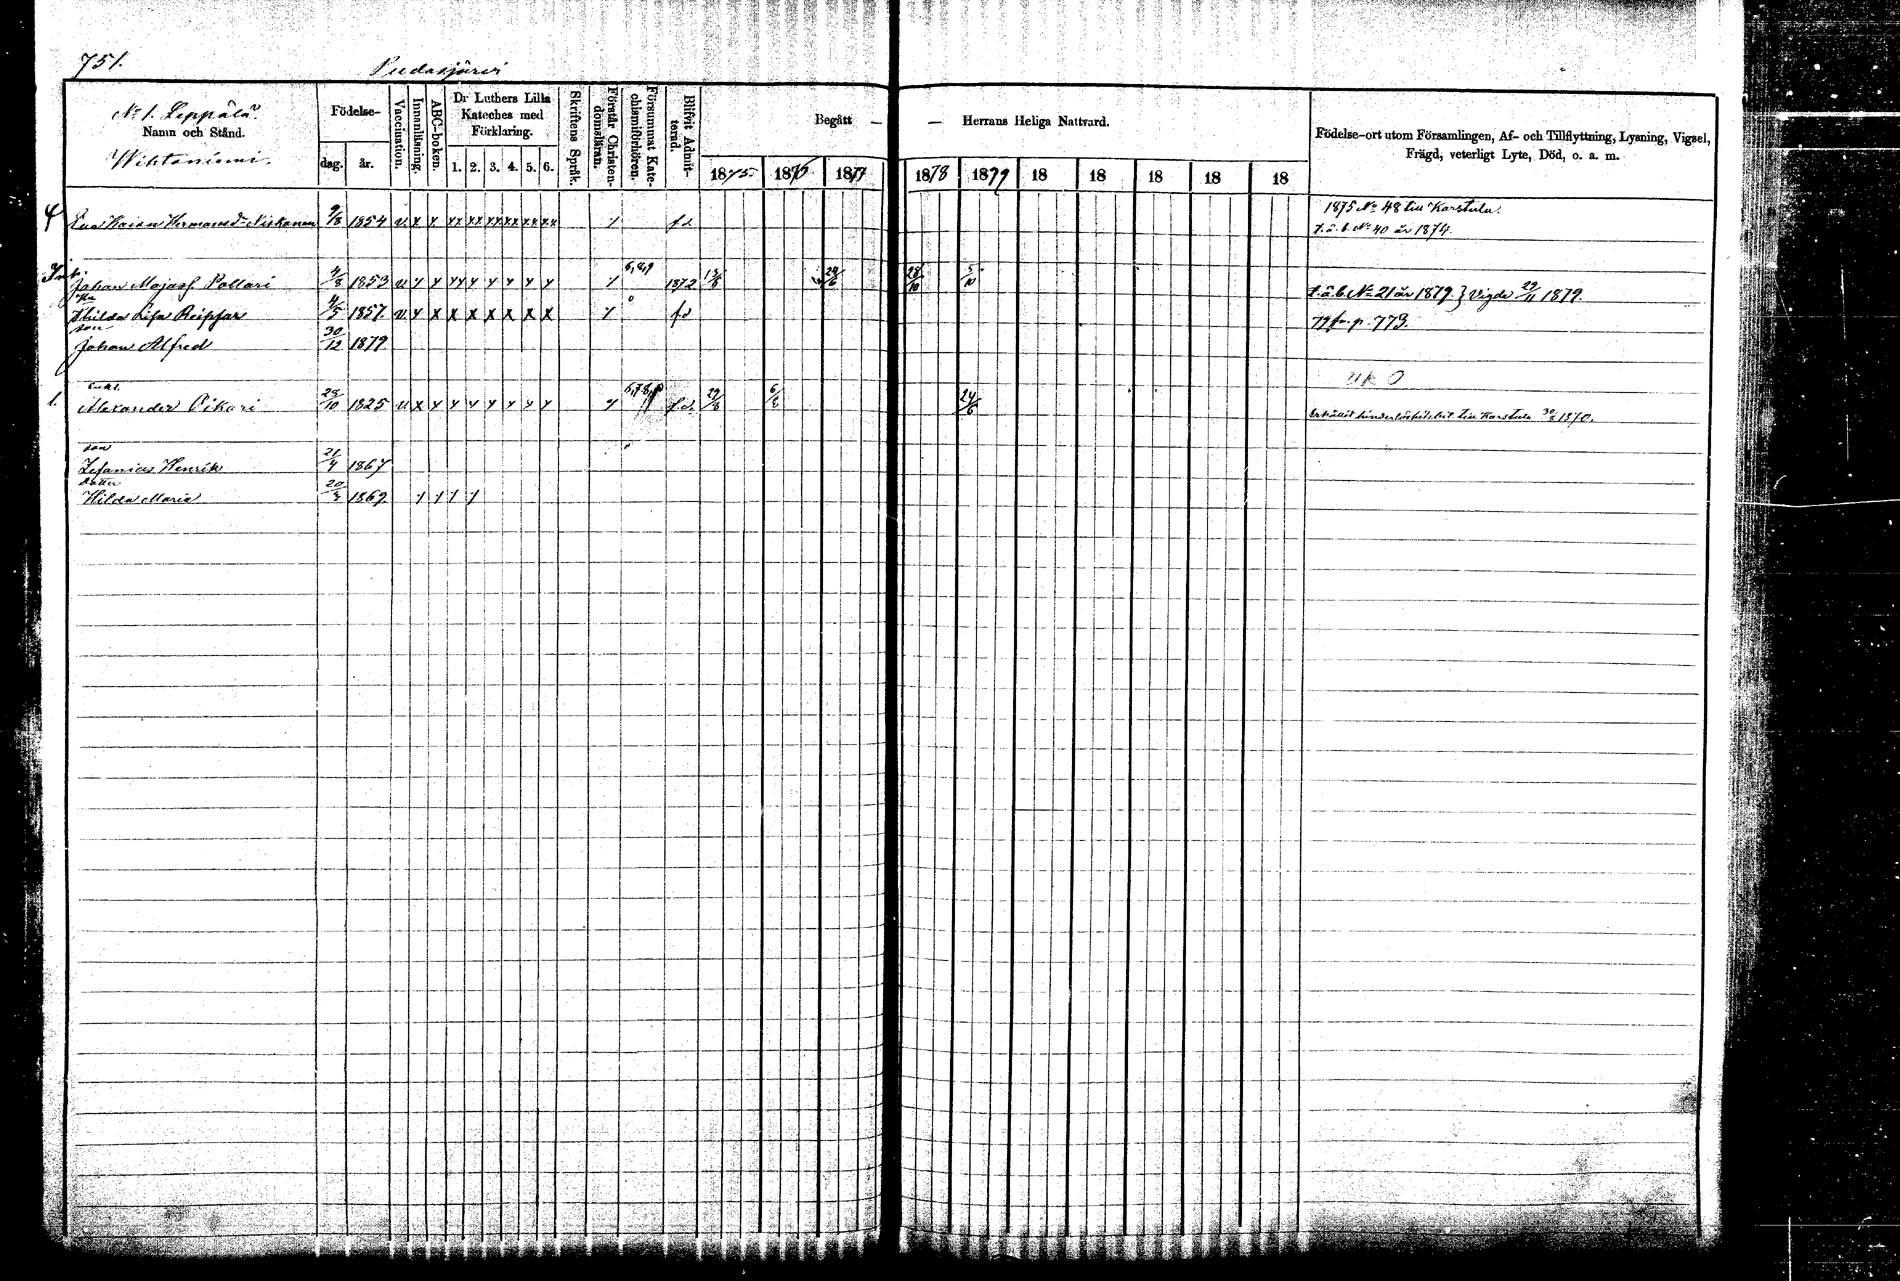 751.
Pudasjärvi
No 1. Leppälä
Namn och Stånd.
Wihtaniemi.
Födelse-
dag. år.
Vaccination.
Innanläsning.
ABC-boken.
Dr Luthers Lilla Kateches med Förklaring.
1. 2. 3. 4. 5. 6.
Skriftens Språk.
Förstår Christendomsläran.
Försummat Katechismiförhören.
Blifvit Admitterad.
Begått — — Herrans Heliga Nattvard.
1875 1876 1877 1878 1879 18 18 18 18 18
Födelse-ort utom Församlingen, Af- och Tillflyttning, Lysning, Vigsel,
Frägd, veterligt Lyte, Död, o. a. m.
1875 No 48 till Karstula.
Eva Kaisa Hermansd. Niskanen 9/8 1854 v. x x xx xx xx xx xx xx f.d
f.å.b. No 40 år 1874.
Johan Majasf Pollari 4/8 1853 v 6,8,9 1872 28/10 5/10
f.å.b. No 21 år 1879 } Vigde 29/11 1879.
Hilda Lisa Reipsar 4/5 1857 v. x x x x x x x f.d
79 fr. p. 773.
son
Johan Alfred 30/12 1879
Enkl.
1. Alexander Oikari 28/10 1825 v x f.d. 29/8 6/8 24/6
Erhållit hinderlöshetsbet. till Karstula 1870.
son
Zefanias Henrik 21/4 1867
dotter
Hilda Maria 1869